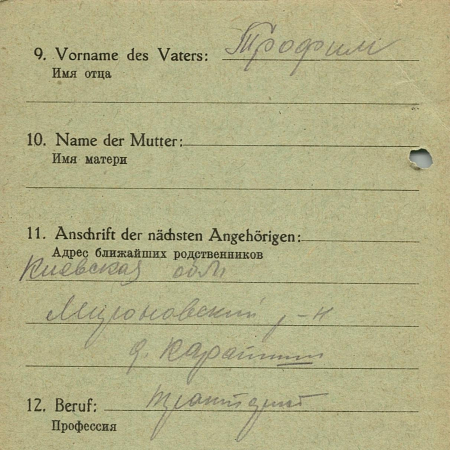 9. Vorname des Vaters: Трофим
Имя отца
10. Name der Mutter:
Имя матери
11. Anschrift der nächsten Angehörigen:
Адрес ближайших родственников
Киевская обл
Мироновский р-н
д. Карапиши
12. Beruf: тракторист
Профессия